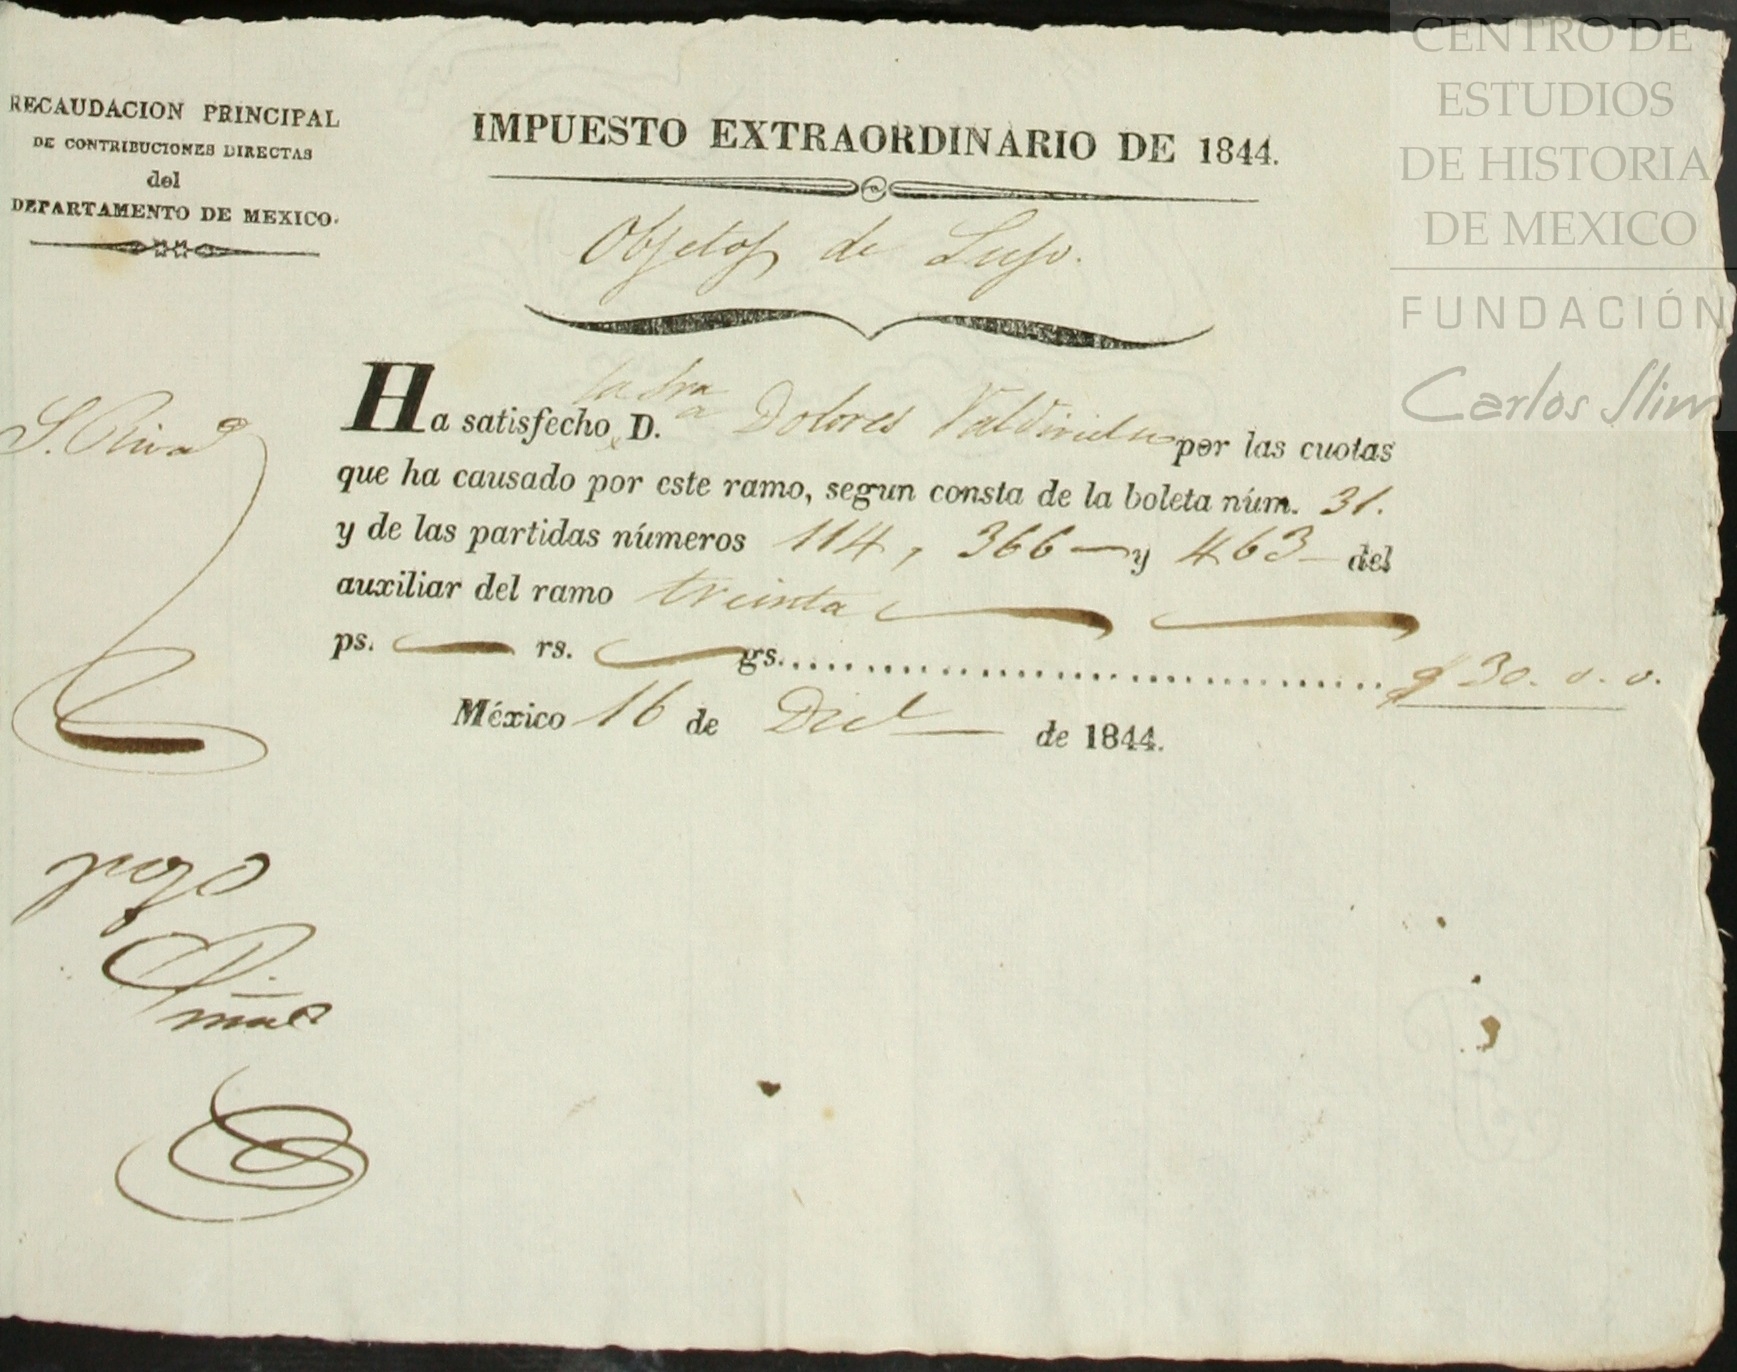 RECAUDACION PRINCIPAL
DE CONTRIBUCIONES DIRECTAS
del
DEPARTAMENTO DE MEXICO.
IMPUESTO EXTRAORDINARIO DE 1844.
Objetos de Lujo.
la Sra
Ha satisfecho D.a Dolores Valdivielso por las cuotas
que ha causado por este ramo, segun consta de la boleta núm. 31.
y de las partidas números 114, 366 y 463 del
auxiliar del ramo treinta
ps. rs. gs. $ 30. 0. 0.
México 16 de Dice de 1844.
CENTRO DE
ESTUDIOS
DE HISTORIA
DE MEXICO
FUNDACIÓN
Carlos Slim